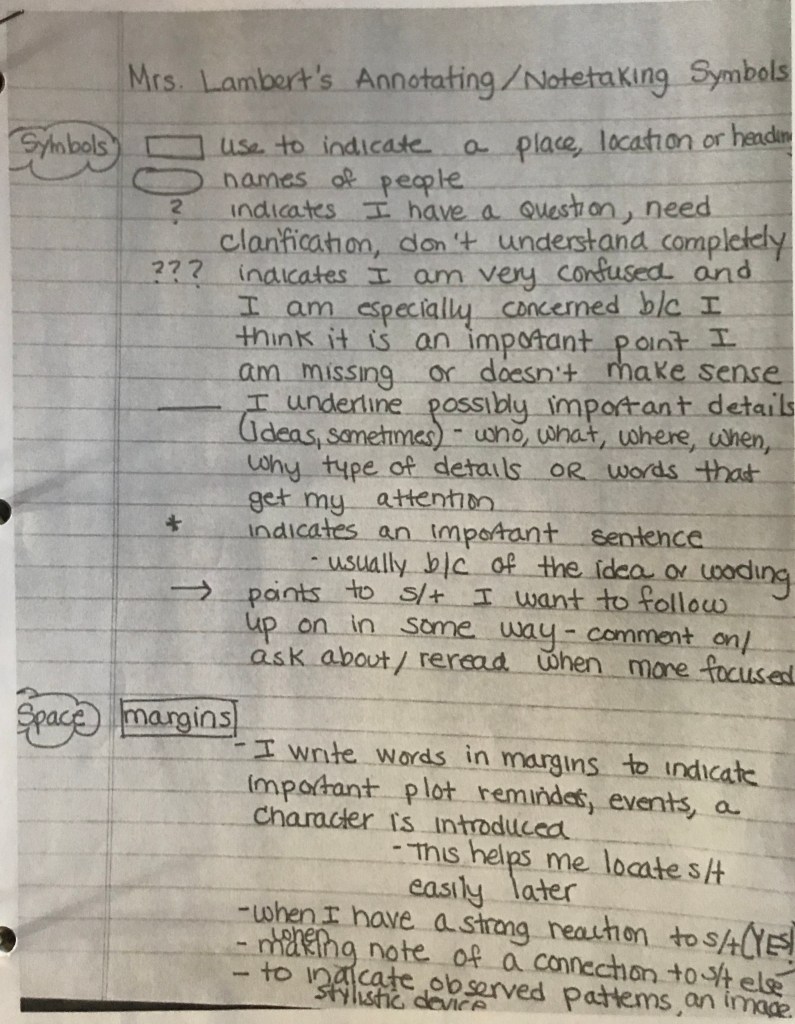 Mrs. Lambert's Annotating/Notetaking Symbols
Symbols use to indicate a place, location or heading
names of people
? indicates I have a question, need
clarification, don't understand completely
??? indicates I am very confused and
I am especially concerned b/c I
think it is an important point I
am missing or doesn't make sense
— I underline possibly important details
(ideas, sometimes) - who, what, where, when,
why type of details OR words that
get my attention
* indicates an important sentence
- usually b/c of the idea or wording
→ points to s/t I want to follow
up on in some way - comment on/
ask about/reread when more focused
Space margins
- I write words in margins to indicate
important plot reminders, events, a
character is introduced
- This helps me locate s/t
easily later
- when I have a strong reaction to s/t (YES!
- when making note of a connection to s/t else
- to indicate observed patterns, an image
stylistic device